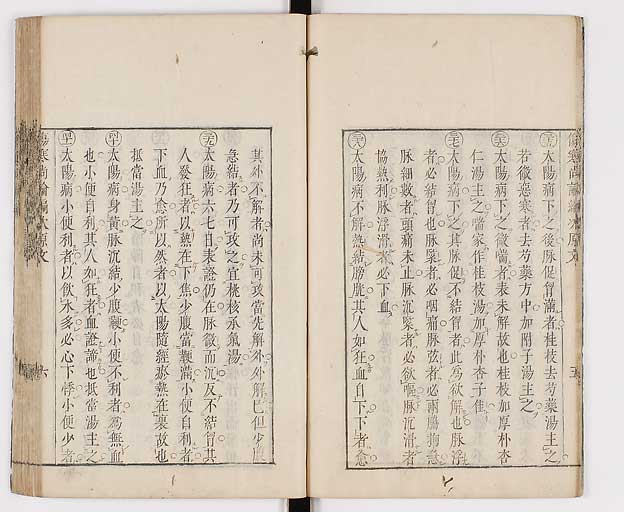 傷寒尚論編次原文 五
三五 太陽病下之後脉促胷滿者桂枝去芍藥湯主之
若微惡寒者去芍藥方中加附子湯主之
三六 太陽病下之微喘者表未解故也桂枝加厚朴杏
仁湯主之喘家作桂枝湯加厚朴杏子佳
三七 太陽病下之其脉促不結胷者此爲欲解也脉浮
者必結胷也脉緊者必咽痛脉弦者必兩脇拘急
脉細數者頭痛未止脉沉緊者必欲嘔脉沉滑者
協熱利脉浮滑者必下血
三八 太陽病不解熱結膀胱其人如狂血自下下者愈
其外不解者尚未可攻當先解外外解已但少腹
急結者乃可攻之宜桃核承氣湯
三九 太陽病六七日表證仍在脉微而沉反不結胷其
人發狂者以熱在下焦少腹當鞕滿小便自利者
下血乃愈所以然者以太陽隨經瘀熱在裏故也
抵當湯主之
四十 太陽病身黃脉沉結少腹鞕小便不利者爲無血
也小便自利其人如狂者血證諦也抵當湯主之
四一 太陽病小便利者以飲水多必心下悸小便少者
傷寒尚論編次原文 六